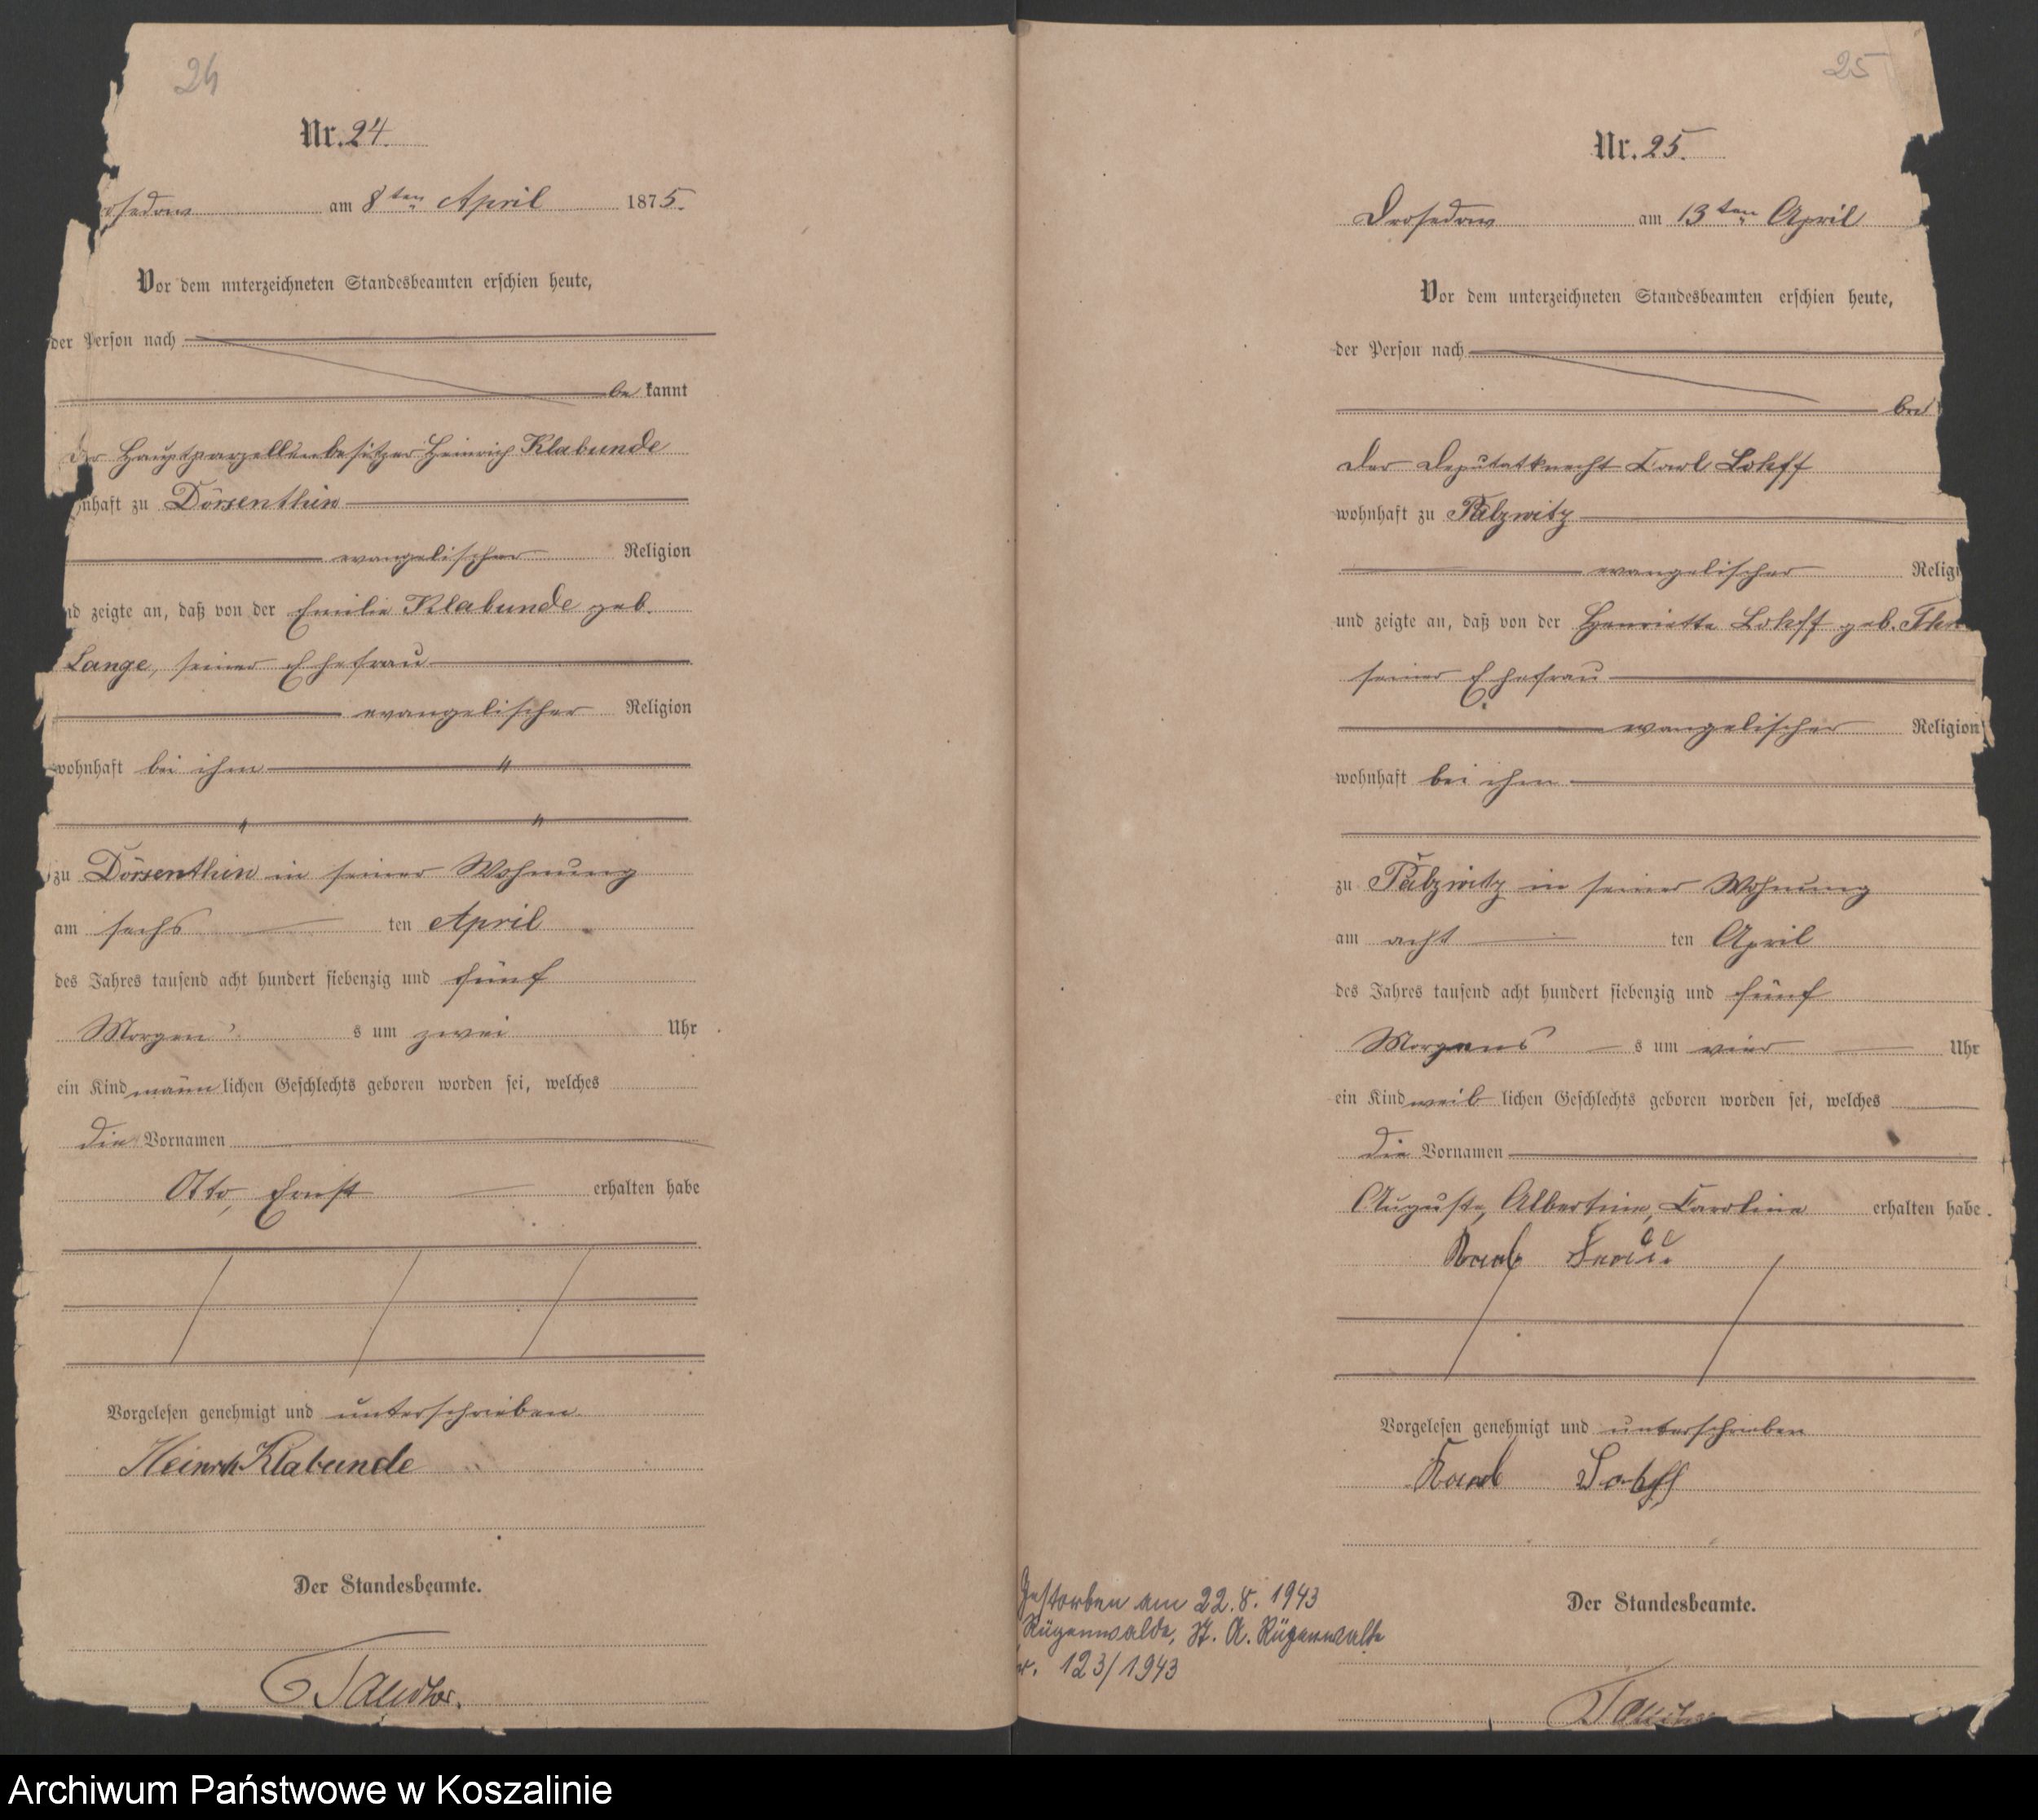 24
Nr. 24.
osedow am 8ten April 1875.
Vor dem unterzeichneten Standesbeamten erschien heute,
der Person nach
be kannt
der Hauptparzellenbesitzer Heinrich Klabunde
nhaft zu Dörsenthin
evangelischer Religion
nd zeigte an, daß von der Emilie Klabunde geb.
Lange, seiner Ehefrau
evangelischer Religion
wohnhaft bei ihm "
" "
zu Dörsenthin in seiner Wohnung
am sechs ten April
des Jahres tausend acht hundert siebenzig und fünf
Morgen s um zwei Uhr
ein Kind männ lichen Geschlechts geboren worden sei, welches
die Vornamen
Otto, Ernst erhalten habe
Vorgelesen genehmigt und unterschrieben
Heinrich Klabunde
Der Standesbeamte.
25
Nr. 25.
Drosedow am 13ten April
Vor dem unterzeichneten Standesbeamten erschien heute,
der Person nach
be
der Deputatknecht Carl Lohff
wohnhaft zu Palzwitz
evangelischer Religi
und zeigte an, daß von der Henriette Lohff geb.
seiner Ehefrau
evangelischer Religion
wohnhaft bei ihm
zu Palzwitz in seiner Wohnung
am acht ten April
des Jahres tausend acht hundert siebenzig und fünf
Morgens s um vier Uhr
ein Kind weib lichen Geschlechts geboren worden sei, welches
die Vornamen
Auguste, Albertine, Caroline erhalten habe.
Vorgelesen genehmigt und unterschrieben
Karl Lohff
Der Standesbeamte.
Gestorben am 22.8.1943
Rügenwalde, St. A. Rügenwalde
r. 123/1943
Archiwum Państwowe w Koszalinie